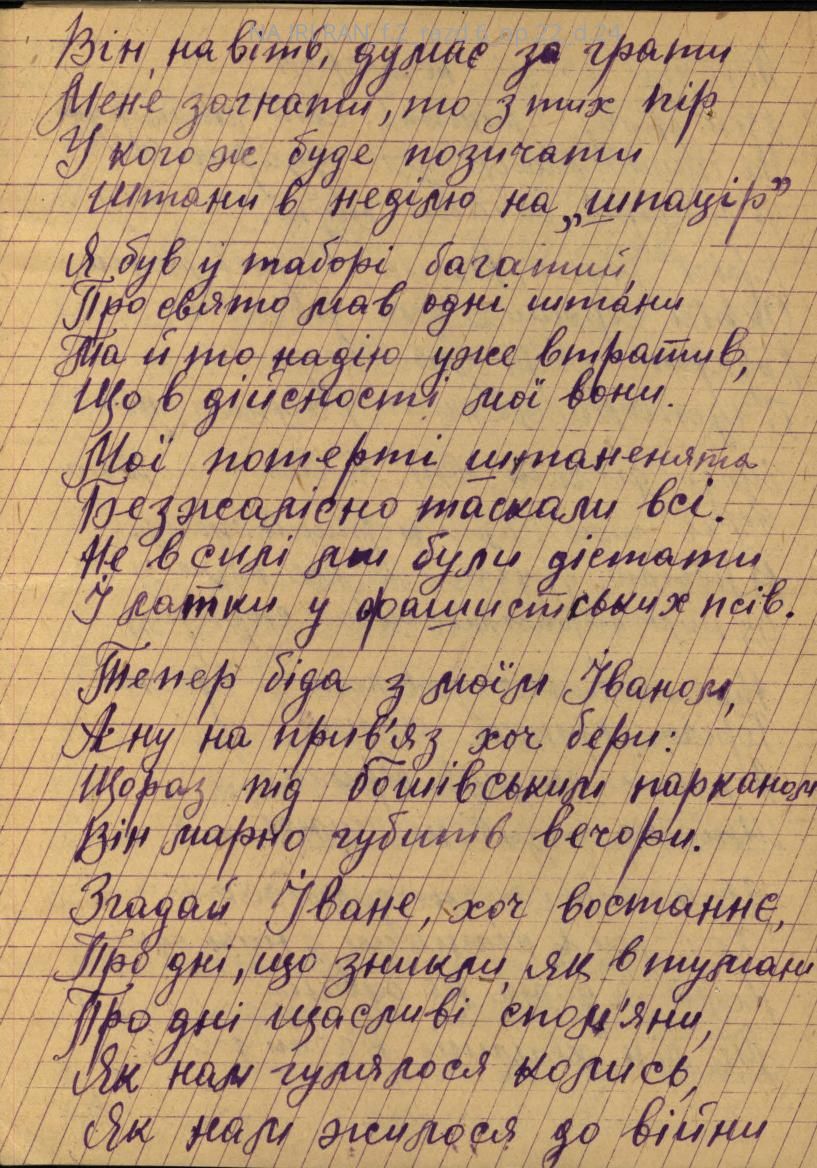 NA IRI RAN_f.2_razd.6_op.22_d.24
Він, навіть, думає за грати
Мене загнати, то з тих пір
У кого ж буде позичати
Штани в неділю на „шпацір”
Я був у таборі багатий,
Про свято мав одні штани
Та й то надію уже втратив,
Що в дійсності мої вони.
Мої потерті штаненята
Безжалісно таскали всі.
Не в силі ми були дістати
І латки у фашистських псів.
Тепер біда з моїм Іваном,
Ану на прив'яз хоч бери:
Щораз під бошівським парканом
Він марно губить вечори.
Згадай Іване, хоч востаннє,
Про дні, що зникли, як в тумани
Про дні щасливі спом'яни,
Як нам гулялося колись,
Як нам жилося до війни